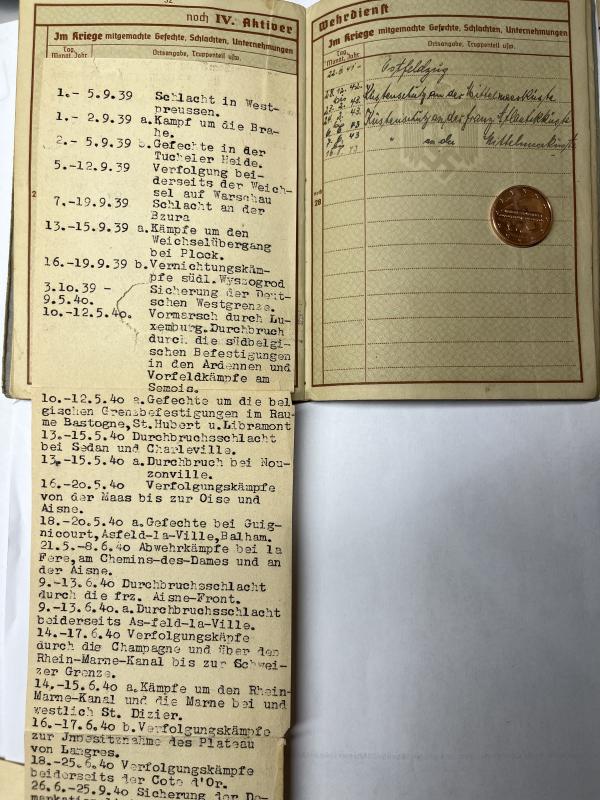 52
noch IV. Aktiver
Im Kriege mitgemachte Gefechte, Schlachten, Unternehmungen
Tag, Monat, Jahr
Ortsangabe, Truppenteil usw.
1.- 5.9.39 Schlacht in West-
preussen.
1.- 2.9.39 a.Kampf um die Bra-
he.
2.- 5.9.39 b.Gefechte in der
Tucheler Heide.
5.-12.9.39 Verfolgung bei-
derseits der Weich-
sel auf Warschau
7.-19.9.39 Schlacht an der
Bzura
13.-15.9.39 a.Kämpfe um den
Weichselübergang
bei Plock.
16.-19.9.39 b.Vernichtungskäm-
pfe südl. Wyszogrod
3.10.39 - Sicherung der Deut-
9.5.40. schen Westgrenze.
10.-12.5.40. Vormarsch durch Lu-
xemburg.Durchbruch
durch die südbelgi-
schen Befestigungen
in den Ardennen und
Vorfeldkämpfe am
Semois.
10.-12.5.40 a.Gefechte um die bel
gischen Grenzbefestigungen im Rau-
me Bastogne,St.Hubert u.Libramont
13.-15.5.40 Durchbruchsschlacht
bei Sedan und Charleville.
13.-15.5.40 a.Durchbruch bei Nou-
zonville.
16.-20.5.40 Verfolgungskämpfe
von der Maas bis zur Oise und
Aisne.
18.-20.5.40 a.Gefechte bei Guig-
nicourt,Asfeld-la-Ville,Balham.
21.5.-8.6.40 Abwehrkämpfe bei la
Fere,am Chemins-des-Dames und an
der Aisne.
9.-13.6.40 Durchbruchsschlacht
durch die frz. Aisne-Front.
9.-13.6.40.a.Durchbruchsschlacht
beiderseits As-feld-la-Ville.
14.-17.6.40 Verfolgungskäpfe
durch die Champagne und über den
Rhein-Marne-Kanal bis zur Schwei-
zer Grenze.
14.-15.6.40 a.Kämpfe um den Rhein-
Marne-Kanal und die Marne bei und
westlich St. Dizier.
16.-17.6.40 b.Verfolgungskämpfe
zur Inbesitznahme des Plateau
von Langres.
18.-25.6.40 Verfolgungskämpfe
beiderseits der Cote d'Or.
26.6.-25.9.40 Sicherung der De-
markation
Wehrdienst
Im Kriege mitgemachte Gefechte, Schlachten, Unternehmungen
Tag, Monat, Jahr
Ortsangabe, Truppenteil usw.
22.6.41 - Ostfeldzug
28.12.42- Küstenschutz an der Mittelmeerküste
Küstenschutz an der franz.
" an der Mittelmeerküste